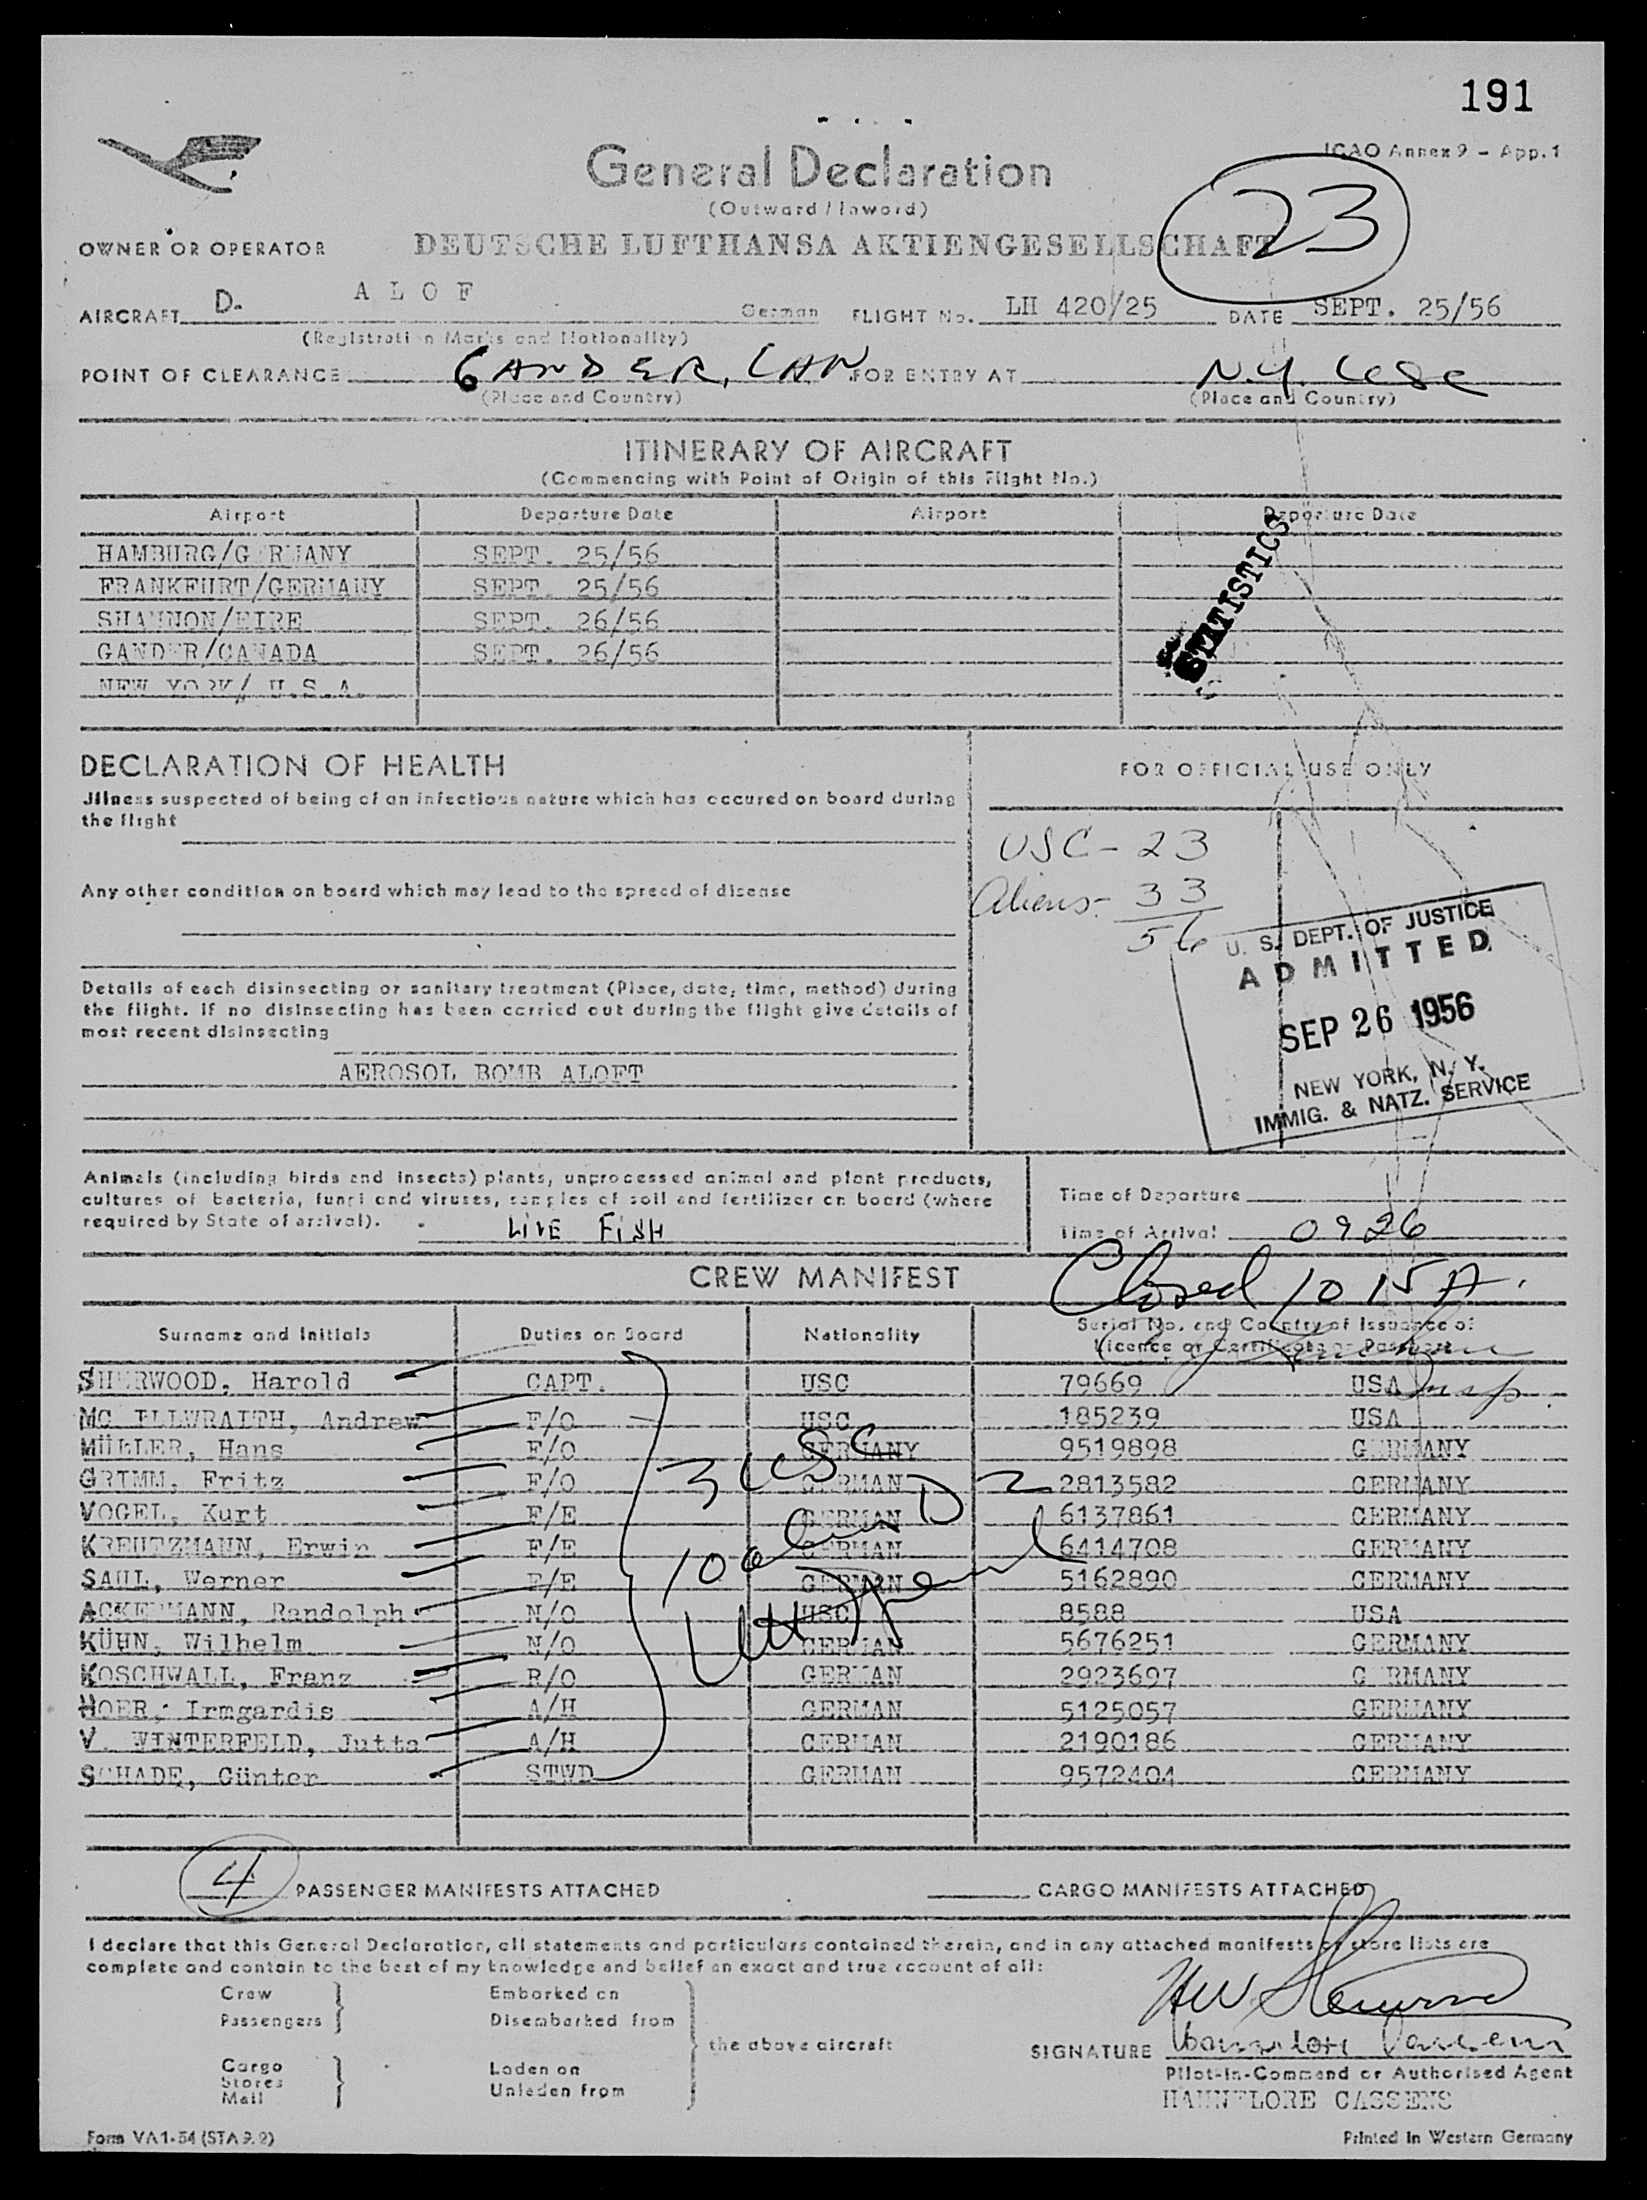 191
ICAO Annex 9 - App. 1
General Declaration
(Outward / Inward)
23
OWNER OR OPERATOR DEUTSCHE LUFTHANSA AKTIENGESELLSCHAFT
AIRCRAFT D- ALOF German FLIGHT No. LH 420/25 DATE SEPT. 25/56
(Registration Marks and Nationality)
POINT OF CLEARANCE GANDER, CAN FOR ENTRY AT N.Y. USA
(Place and Country) (Place and Country)
ITINERARY OF AIRCRAFT
(Commencing with Point of Origin of this Flight No.)
Airport Departure Date Airport Departure Date
HAMBURG/GERMANY SEPT. 25/56
FRANKFURT/GERMANY SEPT. 25/56
SHANNON/EIRE SEPT. 26/56
GANDER/CANADA SEPT. 26/56
NEW YORK/ U.S.A.
STATISTICS
DECLARATION OF HEALTH
Illness suspected of being of an infectious nature which has occured on board during
the flight
Any other condition on board which may lead to the spread of disease
Details of each disinsecting or sanitary treatment (Place, date, time, method) during
the flight. If no disinsecting has been carried out during the flight give details of
most recent disinsecting
AEROSOL BOMB ALOFT
FOR OFFICIAL USE ONLY
USC - 23
Aliens - 33
56
U. S. DEPT. OF JUSTICE
ADMITTED
SEP 26 1956
NEW YORK, N. Y.
IMMIG. & NATZ. SERVICE
Animals (including birds and insects) plants, unprocessed animal and plant products,
cultures of bacteria, fungi and viruses, samples of soil and fertilizer on board (where
required by State of arrival). LIVE FISH
Time of Departure
Time of Arrival 0926
Closed 10 15 A.
CREW MANIFEST
Surname and Initials Duties on Board Nationality Serial No. and Country of Issuance of
Licence or Certificate or Passport
Insp.
SHERWOOD, Harold CAPT. USC 79669 USA
MC ILLWRAITH, Andrew F/O USC 185239 USA
MÜLLER, Hans F/O GERMANY 9519898 GERMANY
GRIMM, Fritz F/O GERMAN 2813582 GERMANY
VOGEL, Kurt F/E GERMAN 6137861 GERMANY
KREUTZMANN, Erwin F/E GERMAN 6414708 GERMANY
SAUL, Werner F/E GERMAN 5162890 GERMANY
ACKERMANN, Randolph N/O USC 8588 USA
KÜHN, Wilhelm N/O GERMAN 5676251 GERMANY
KOSCHWALL, Franz R/O GERMAN 2923697 GERMANY
HOER, Irmgardis A/H GERMAN 5125057 GERMANY
V. WINTERFELD, Jutta A/H GERMAN 2190186 GERMANY
SCHADE, Günter STWD GERMAN 9572404 GERMANY
3 USC
10 alien D 2
4 PASSENGER MANIFESTS ATTACHED CARGO MANIFESTS ATTACHED
I declare that this General Declaration, all statements and particulars contained therein, and in any attached manifests or store lists are
complete and contain to the best of my knowledge and belief an exact and true account of all:
Crew Embarked on
Passengers Disembarked from
the above aircraft
Cargo Laden on
Stores
Mail Unladen from
SIGNATURE
Pilot-in-Command or Authorised Agent
HANNELORE CASSENS
Form VA1-54 (STA 9.2) Printed in Western Germany